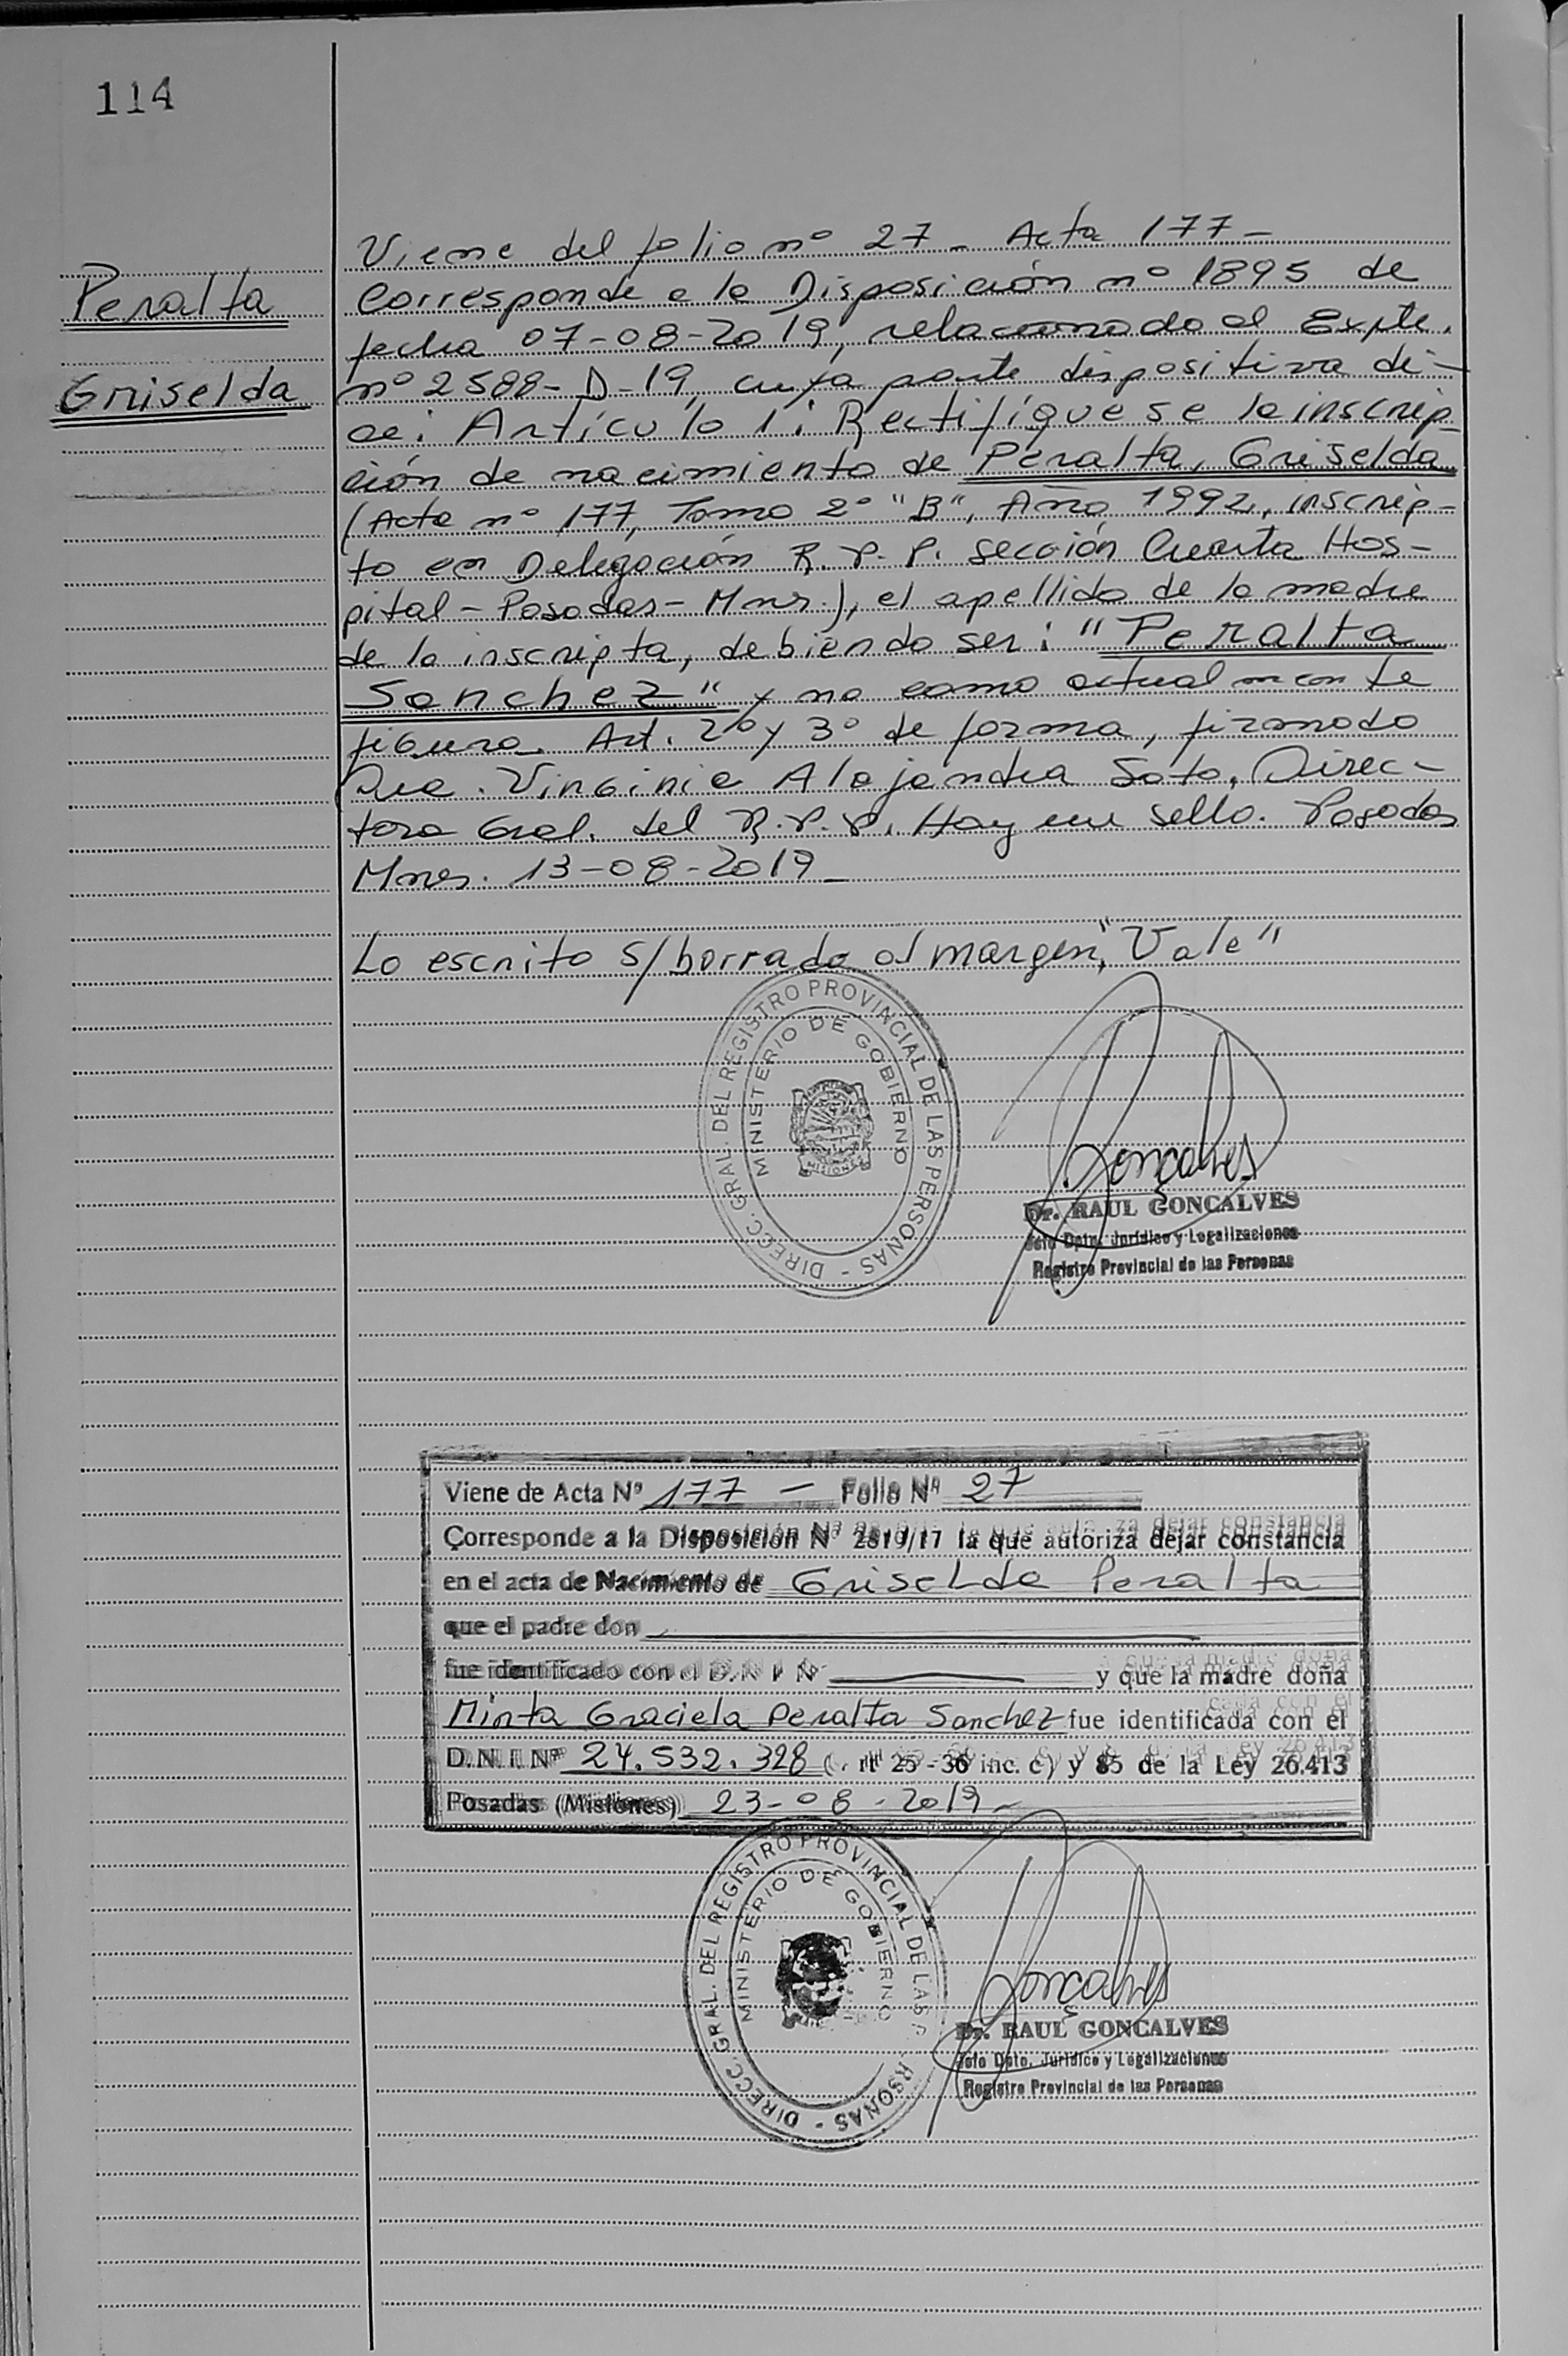 114
Peralta
Griselda
Viene del folio nº 27 - Acta 177 -
Corresponde a la Disposición nº 1895 de
fecha 07-08-2019, relacionado al Expte.
nº 2588-D-19, cuya parte dispositiva di-
ce: Artículo 1: Rectifíquese la inscrip-
ción de nacimiento de Peralta, Griselda
(Acta nº 177, Tomo 2º "B", Año 1992, inscrip-
to en Delegación R.P.P. Sección Cuarta Hos-
pital - Posadas - Mnes.), el apellido de la madre
de la inscripta, debiendo ser: "Peralta
Sanchez" y no como actualmente
figura. Art. 2º y 3º de forma, firmado
Dra. Virginia Alejandra Soto, Direc-
tora Gral. del R.P.P. Hay un sello. Posadas
Mnes. 13-08-2019 -
Lo escrito s/borrado al margen, "Vale"
DIRECC. GRAL. DEL REGISTRO PROVINCIAL DE LAS PERSONAS -
MINISTERIO DE GOBIERNO
MISIONES
Gonçalves
Dr. RAUL GONCALVES
Jefe Dpto. Jurídico y Legalizaciones
Registro Provincial de las Personas
Viene de Acta Nº 177 - Folio Nº 27
Corresponde a la Disposición Nº 2819/17 la que autoriza dejar constancia
en el acta de Nacimiento de Griselda Peralta
que el padre don
fue identificado con el D.N.I Nº y que la madre doña
Mirta Graciela Peralta Sanchez fue identificada con el
D.N.I. Nº 24.532.328 25 - 36 inc. c) y 85 de la Ley 26.413
Posadas (Misiones) 23-08-2019 -
DIRECC. GRAL. DEL REGISTRO PROVINCIAL DE LAS P RSONAS -
MINISTERIO DE GOBIERNO
Gonçalves
Dr. RAUL GONCALVES
Jefe Dpto. Jurídico y Legalizaciones
Registro Provincial de las Personas